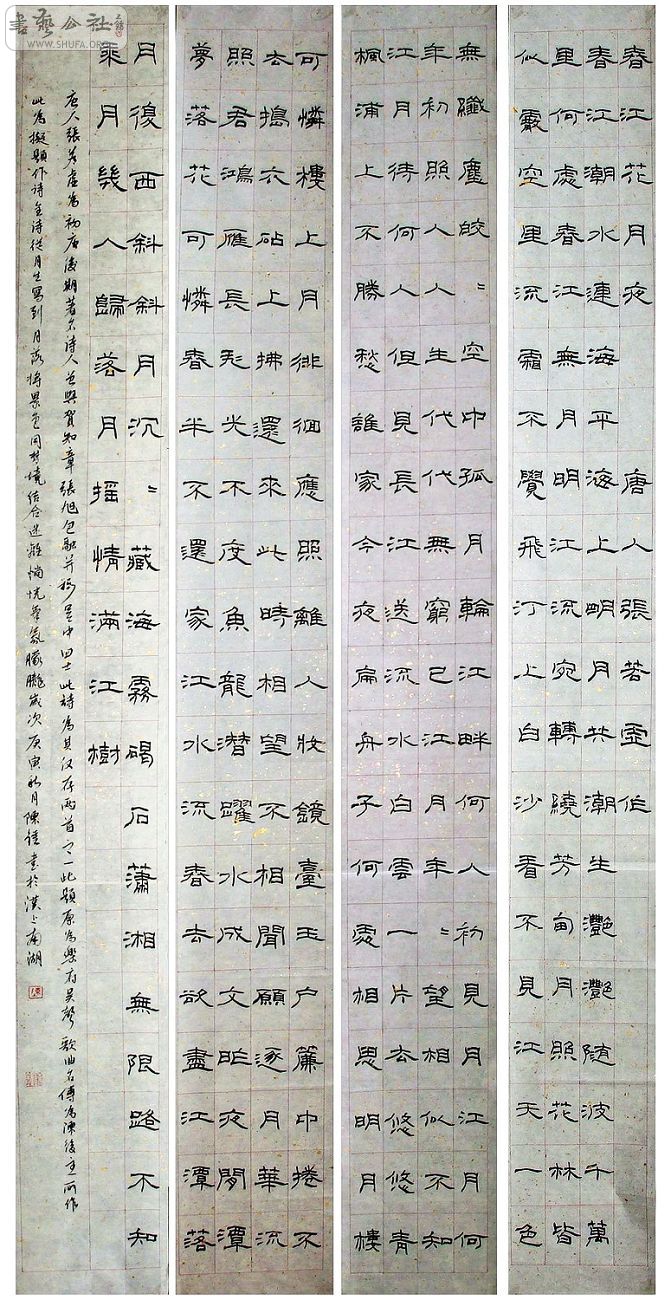 書藝公社
WWW.SHUFA.ORG
春江花月夜 唐人張若虛作
春江潮水連海平海上明月共潮生灩灩随波千萬
里何處春江無月明江流宛轉繞芳甸月照花林皆
似霰空里流霜不覺飛汀上白沙看不見江天一色
無纖塵皎〻空中孤月輪江畔何人初見月江月何
年初照人人生代代無窮已江月年〻望相似不知
江月待何人但見長江送流水白雲一片去悠悠青
楓浦上不勝愁誰家今夜扁舟子何處相思明月樓
可憐樓上月徘徊應照離人妝鏡臺玉户簾中捲不
去搗衣砧上拂還來此時相望不相聞願逐月華流
照君鴻雁長飛光不度魚龍潜躍水成文昨夜閒潭
夢落花可憐春半不還家江水流春去欲盡江潭落
月復西斜斜月沉〻藏海霧碣石瀟湘無限路不知
乘月幾人歸落月摇情滿江樹
唐人張若虛為初唐後期著名詩人曾與賀知章張旭包融并稱吳中四士此詩為其僅存兩首之一此題原為樂府吴聲歌曲名傳為陳後主所作
此為擬題作詩全詩從月生寫到月落將景色同梦境結合迷離惝恍氛朦朧歲次庚寅秋月陳書於漢上南湖